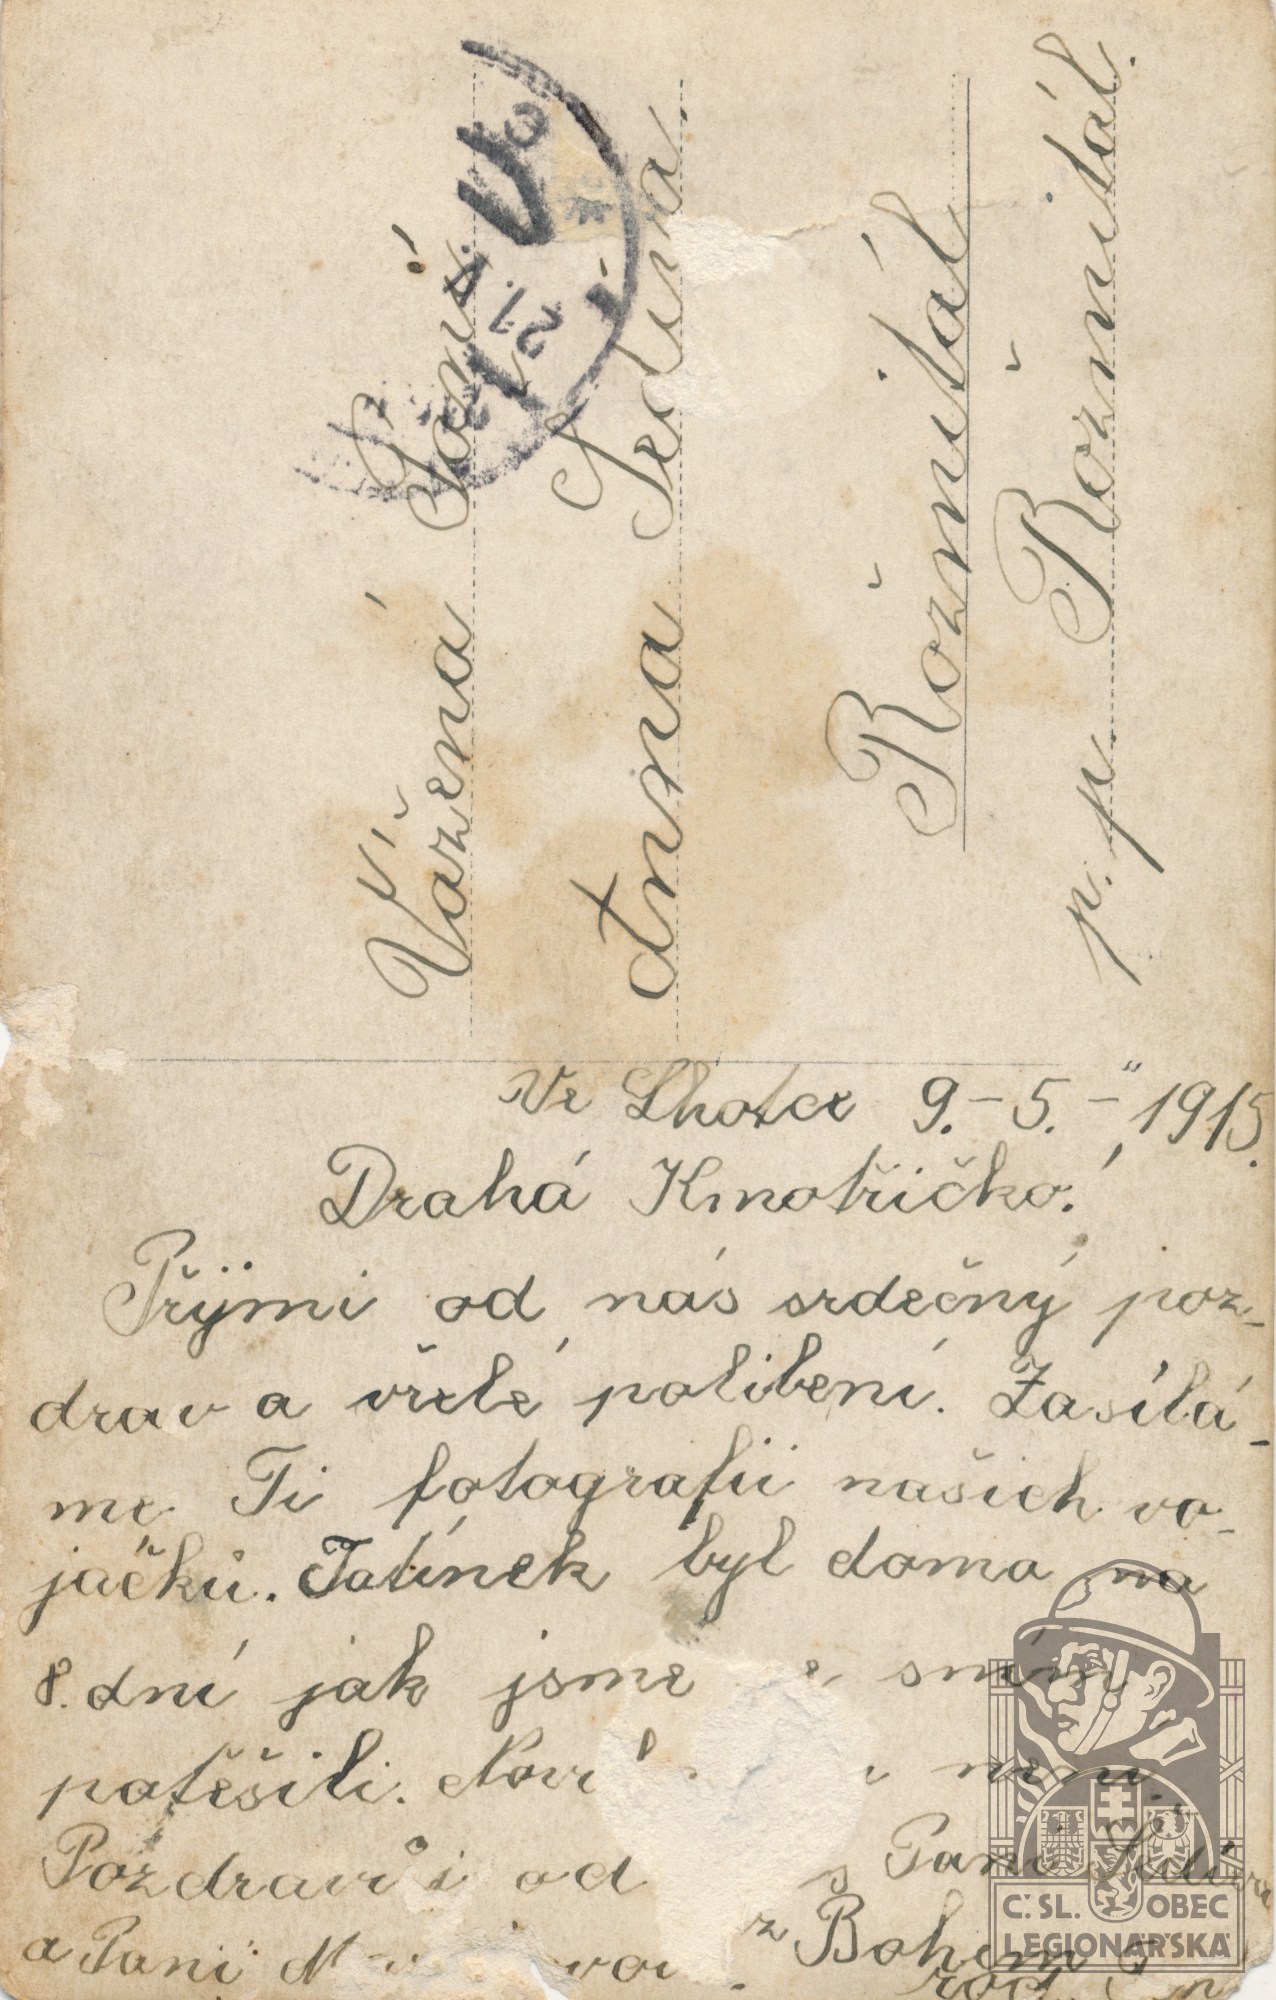 Vážená Paní
Anna Šedivá
Rožmitál
p. p. Rožmitál.
Ve Lhotce 9.-5.-"1915.
Drahá Kmotřičko!
Přÿmi od nás srdečný poz-
drav a vřelé políbení. Zasílá-
me Ti fotografii našich vo-
jáčků. Tatínek byl doma na
8. dní jak jsme se s ním
potěšili. není
Pozdravuj od Paní
a Paní z Bohem
rod.
21. V
Č.SL. OBEC
LEGIONÁŘSKÁ